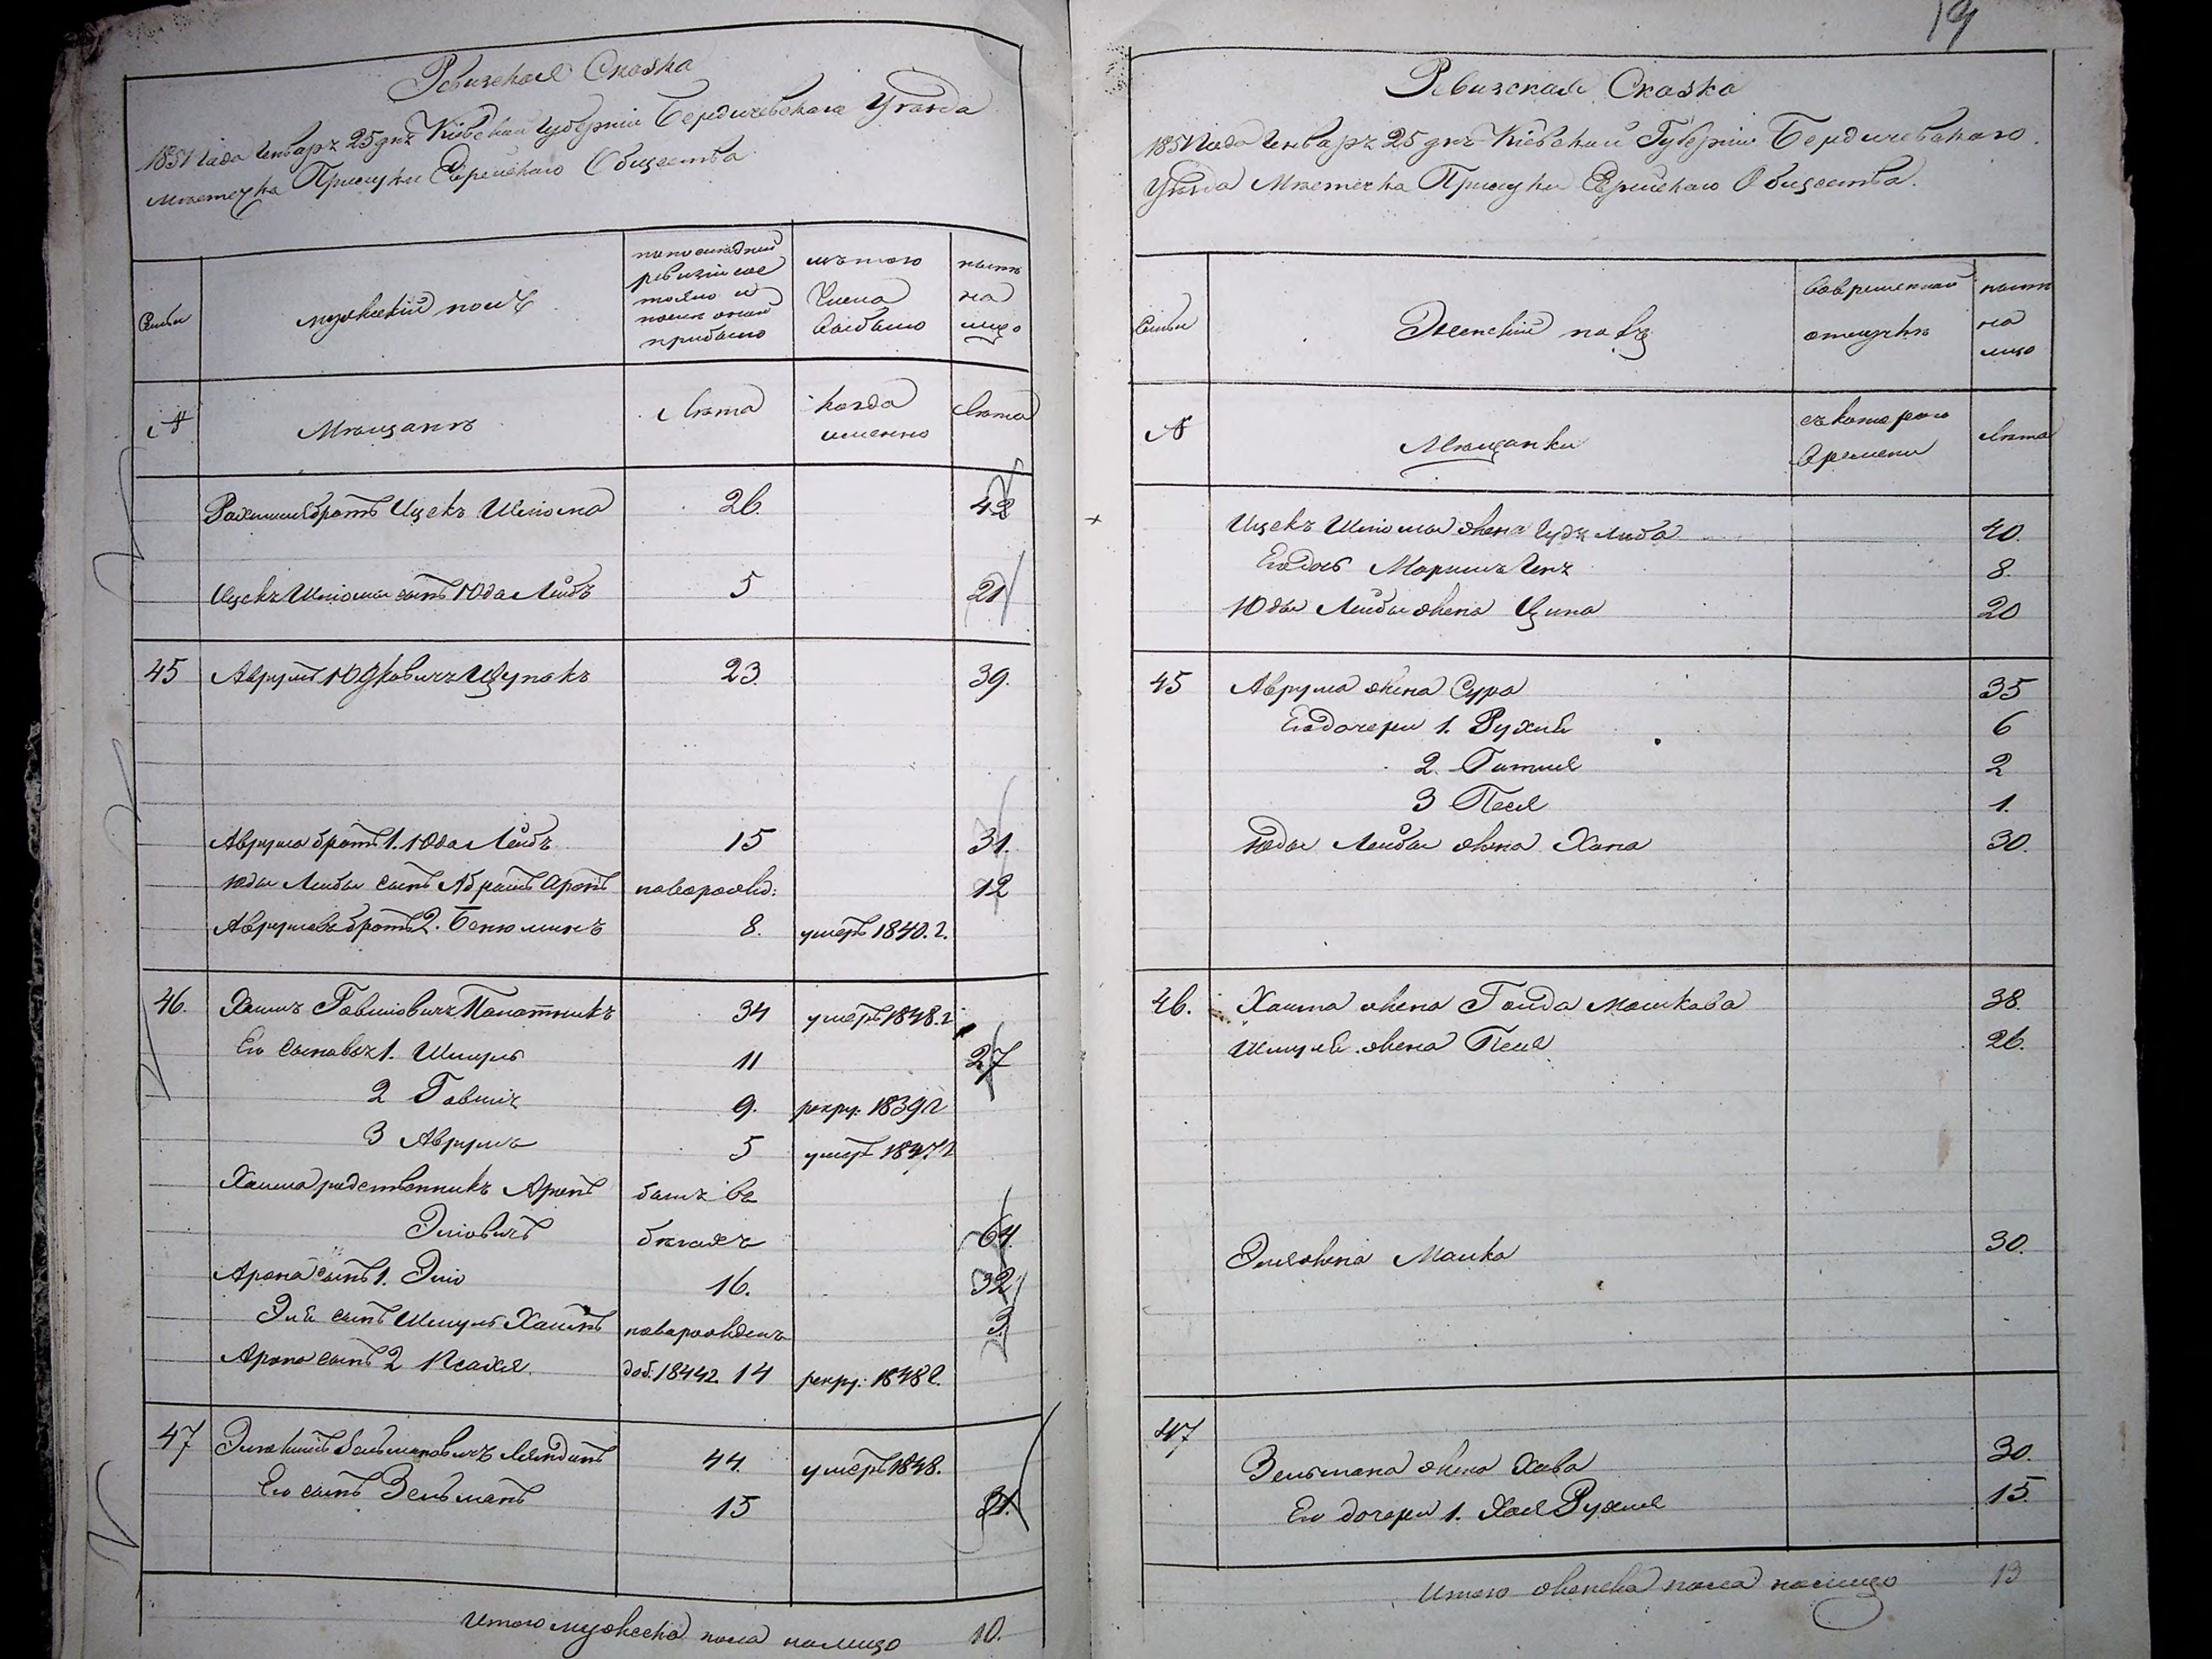 Ревизская Сказка
1851 Года Генваря 25 дня Кіевской Губерніи Бердичевскаго Уѣзда
Мѣстечка Прилуки Еврейскаго Общества
Семьи
мужескій полъ
по последней
ревизіи сос
тояло и
после оной
прибыло
изъ того
Числа
выбыло
нынѣ
на
лицо
№
Мѣщанѣ
Лѣта
когда
именно
Лѣта
братъ Ицекъ Шліома 26. 42
Ицекъ Шліомы сынъ Юда Лейбъ 5 21
45 Аврумъ Юдковичъ Щупакъ 23. 39.
Аврума братъ 1. Юда Лейбъ 15 31.
Юды Лейбы сынъ Абрамъ Аронъ новорожд: 12
Аврумовъ братъ 2. Бенюминъ 8. умеръ 1840. г.
46. Хаимъ Говшіовичъ 34 умеръ 1848. г
Его Сыновья 1. Шмуль 11 27
2 Говшія 9. рекру: 1839 г
3 Аврумъ 5 умеръ 1847 г
Хаима родственникъ Аронъ былъ въ
Эліовичъ бѣгахъ 64.
Арона сынъ 1. Эліо 16. 32
Эліи сынъ Шмуль Хаимъ новорожденъ 3.
Арона сынъ 2 Псахія. доб. 1844 г. 14 рекру: 1848 г.
47 Зельмановичъ 44. умеръ 1848.
Его сынъ Зельманъ 15 31.
Итого мужеска пола налицо 10.
19
Ревизская Сказка
1851 Года Генваря 25 дня Кіевской Губерніи Бердичевскаго
Уѣзда Мѣстечка Прилуки Еврейскаго Общества.
Семьи
Женскій полъ
Вовременной
отлучкѣ
нынѣ
на
лицо
№
Мѣщанки
съ котораго
Времени
Лѣта
Ицекъ Шліомы жена Гудя Либа 40.
Его дочь 8.
Юды Лейбы жена Ципа 20
45 Аврума жена Сура 35
Его дочери 1. Рухля 6
2. Гитля 2
3 Песя 1.
Юды Лейбы жена Хана 30.
46. Хаима жена Голда Мошкова 38.
Шмуля жена Песя 26.
Эліи жена Малка 30.
47
Зельмана жена Хава 30.
Его дочери 1. Хая Рухля 15.
Итого женска пола налицо 13